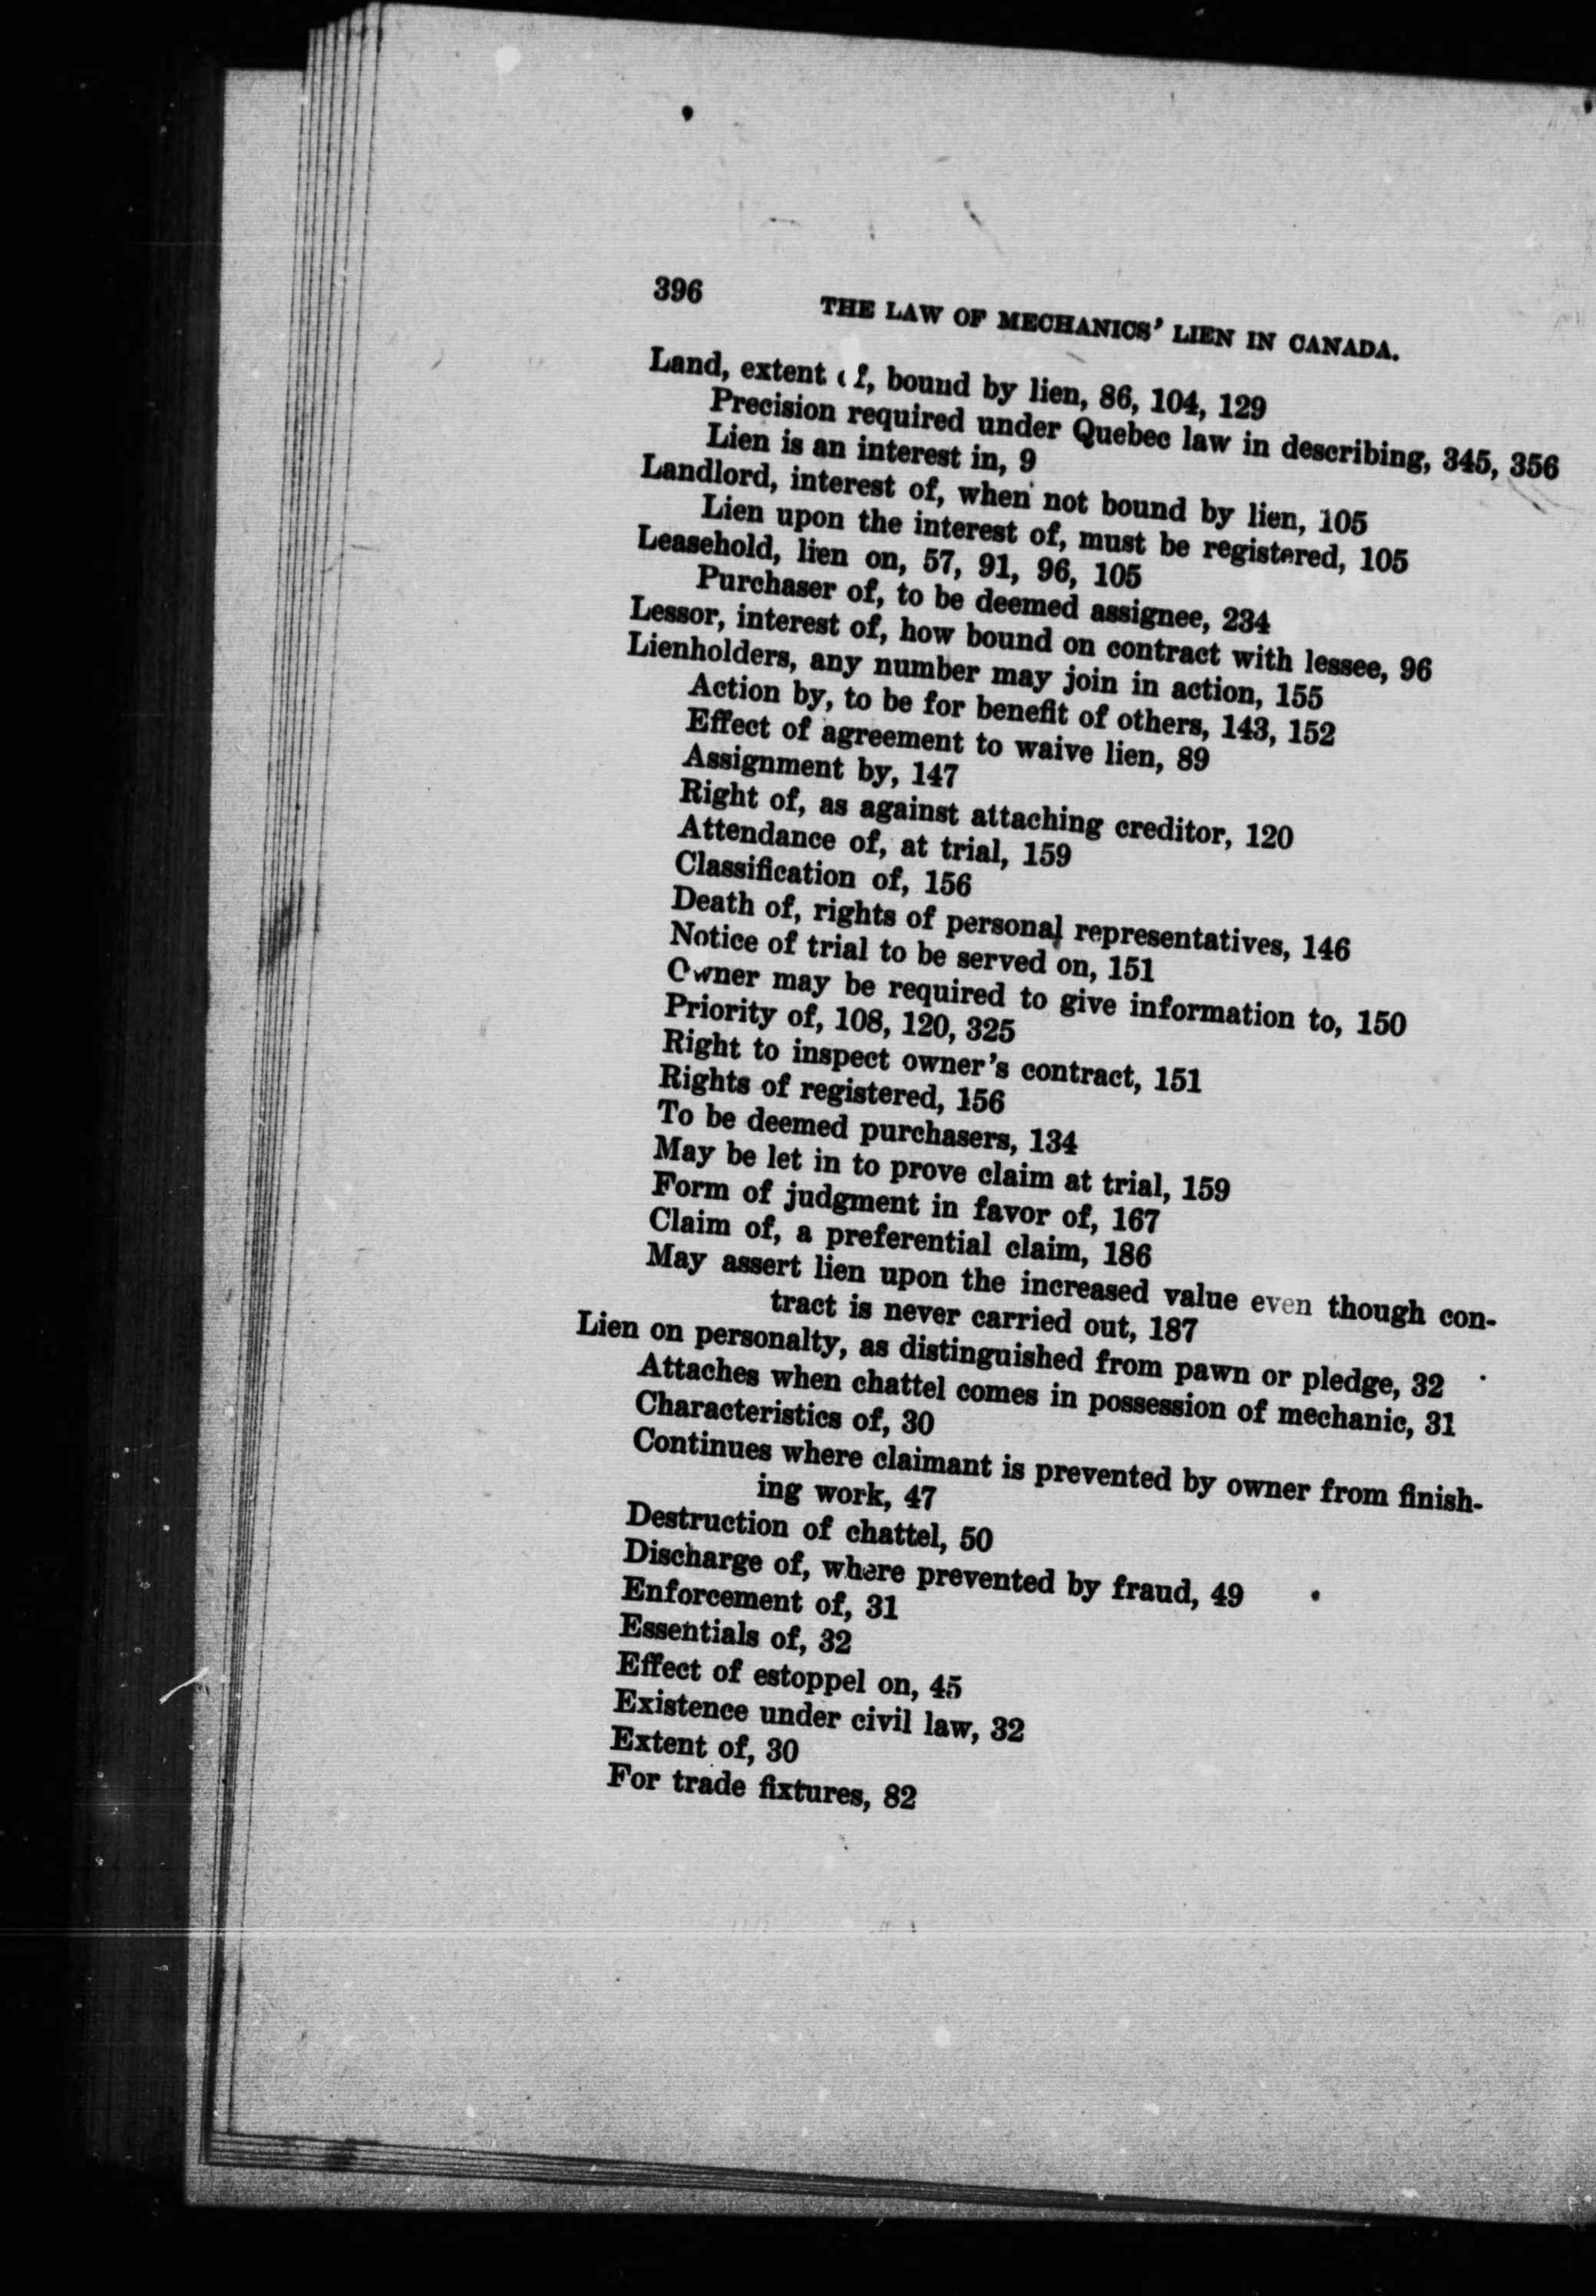 396 THE LAW OF MECHANICS' LIEN IN CANADA.
Land, extent of, bound by lien, 86, 104, 129
Precision required under Quebec law in describing, 345, 356
Lien is an interest in, 9
Landlord, interest of, when not bound by lien, 105
Lien upon the interest of, must be registered, 105
Leasehold, lien on, 57, 91, 96, 105
Purchaser of, to be deemed assignee, 234
Lessor, interest of, how bound on contract with lessee, 96
Lienholders, any number may join in action, 155
Action by, to be for benefit of others, 143, 152
Effect of agreement to waive lien, 89
Assignment by, 147
Right of, as against attaching creditor, 120
Attendance of, at trial, 159
Classification of, 156
Death of, rights of personal representatives, 146
Notice of trial to be served on, 151
Owner may be required to give information to, 150
Priority of, 108, 120, 325
Right to inspect owner's contract, 151
Rights of registered, 156
To be deemed purchasers, 134
May be let in to prove claim at trial, 159
Form of judgment in favor of, 167
Claim of, a preferential claim, 186
May assert lien upon the increased value even though con-
tract is never carried out, 187
Lien on personalty, as distinguished from pawn or pledge, 32
Attaches when chattel comes in possession of mechanic, 31
Characteristics of, 30
Continues where claimant is prevented by owner from finish-
ing work, 47
Destruction of chattel, 50
Discharge of, where prevented by fraud, 49
Enforcement of, 31
Essentials of, 32
Effect of estoppel on, 45
Existence under civil law, 32
Extent of, 30
For trade fixtures, 82